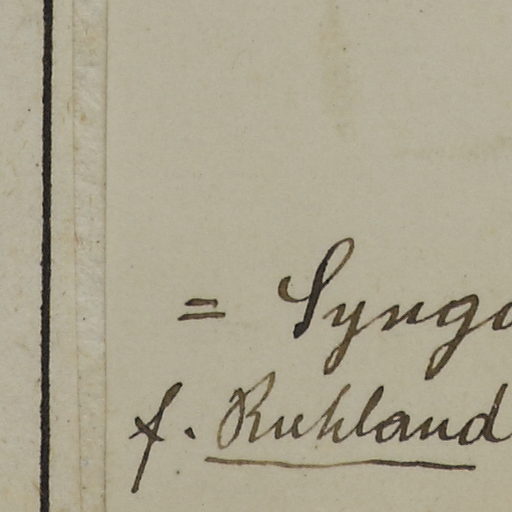 = Syngo
f. Ruhland